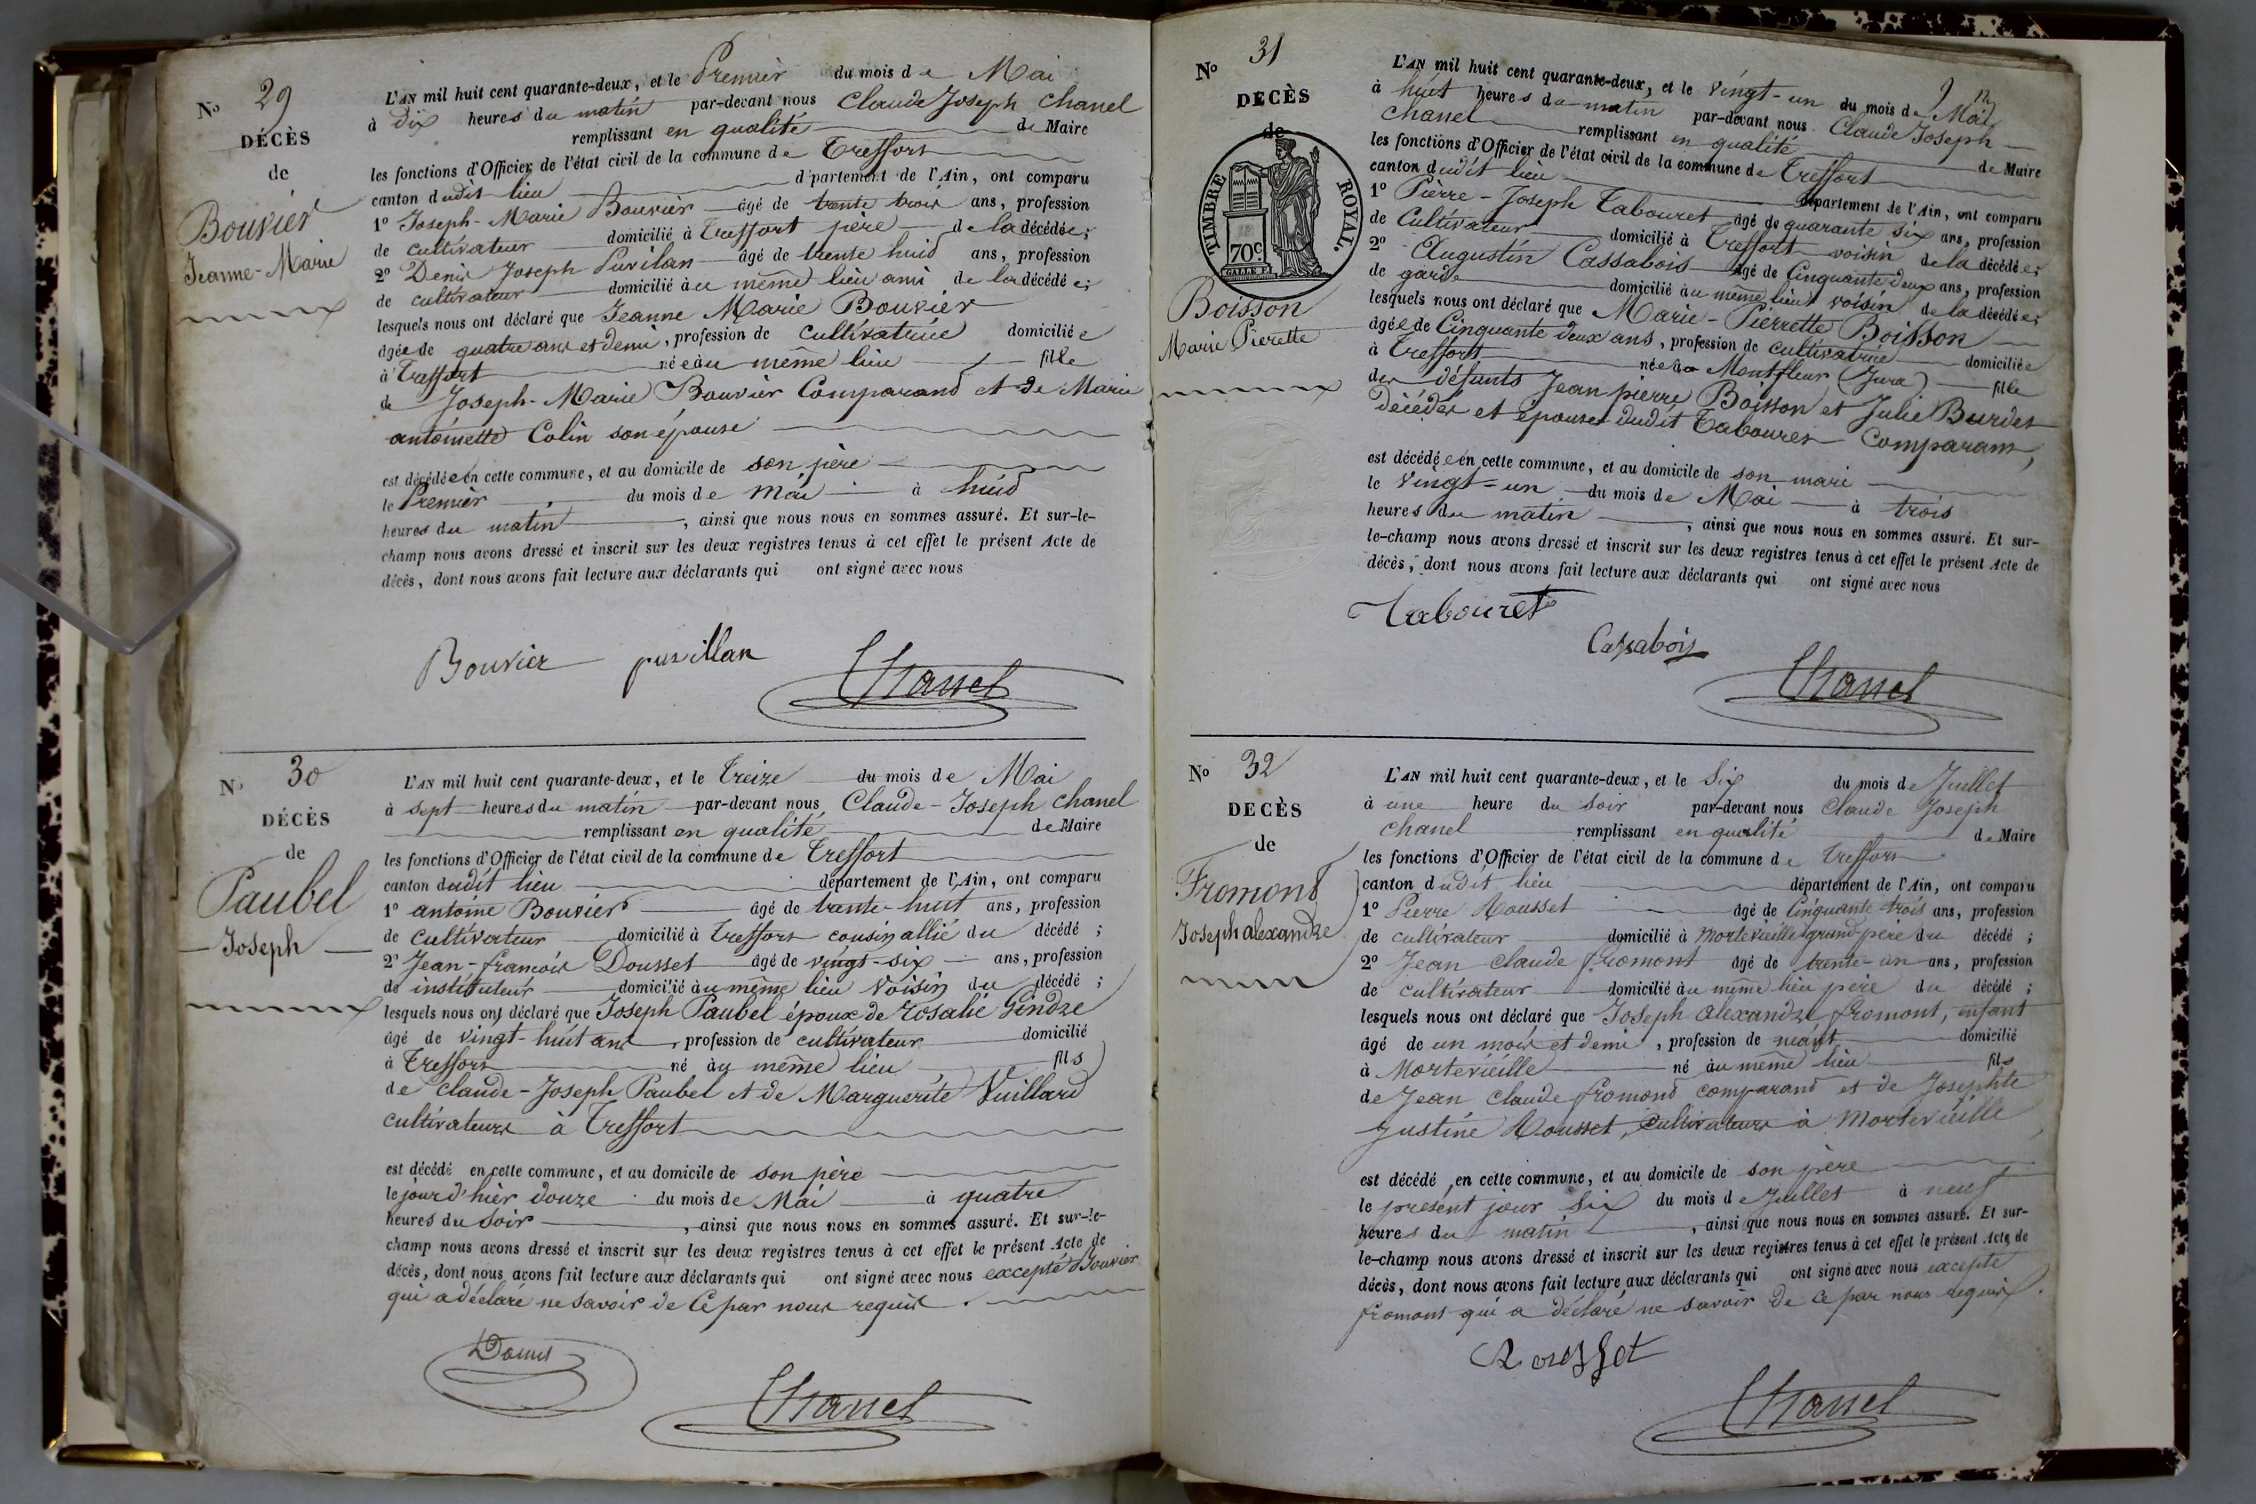 No 29
DÉCÈS
de
Bouvier
Jeanne-Marie
L'AN mil huit cent quarante-deux, et le Premier du mois de Mai
à dix heures du matin par-devant nous Claude Joseph Chanel
remplissant en qualité de Maire
les fonctions d'Officier de l'état civil de la commune de Treffort
canton dudit lieu département de l'Ain, ont comparu
1o Joseph-Marie Bouvier âgé de trente trois ans, profession
de cultivateur domicilié à Treffort père de la décédée;
2o Denis Joseph Puvilan âgé de trente huit ans, profession
de cultivateur domicilié au même lieu ami de la décédée;
lesquels nous ont déclaré que Jeanne Marie Bouvier
âgée de quatre ans et demi, profession de cultivatrice domiciliée
à Treffort née au même lieu fille
de Joseph-Marie Bouvier Comparand et de Marie
antoinette Colin son épouse
est décédée en cette commune, et au domicile de son père
le Premier du mois de Mai à huit
heures du matin, ainsi que nous nous en sommes assuré. Et sur-le-
champ nous avons dressé et inscrit sur les deux registres tenus à cet effet le présent Acte de
décès, dont nous avons fait lecture aux déclarants qui ont signé avec nous
Bouvier puvillan
Chanel
No 30
DÉCÈS
de
Paubel
Joseph
L'AN mil huit cent quarante-deux, et le treize du mois de Mai
à sept heures du matin par-devant nous Claude-Joseph Chanel
remplissant en qualité de Maire
les fonctions d'Officier de l'état civil de la commune de Treffort
canton dudit lieu département de l'Ain, ont comparu
1o antoine Bouvier âgé de trente-huit ans, profession
de cultivateur domicilié à Treffort cousin allié du décédé;
2o Jean-francois Dousset âgé de vingt-six ans, profession
de instituteur domicilié au même lieu voisin du décédé;
lesquels nous ont déclaré que Joseph Paubel époux de Rosalie Gindre
âgé de vingt-huit ans, profession de cultivateur domicilié
à Treffort né au même lieu fils
de Claude-Joseph Paubel et de Marguerite Vuillard
cultivateurs à Treffort
est décédé en cette commune, et au domicile de son père
le jour d'hier douze du mois de Mai à quatre
heures du soir, ainsi que nous nous en sommes assuré. Et sur-le-
champ nous avons dressé et inscrit sur les deux registres tenus à cet effet le présent Acte de
décès, dont nous avons fait lecture aux déclarants qui ont signé avec nous excepté Bouvier
qui a déclaré ne savoir de ce par nous requis.
Chanel
No 31
DÉCÈS
de
TIMBRE ROYAL.
70c
Boisson
Marie Pierette
L'AN mil huit cent quarante-deux, et le vingt-un du mois de Mai
à huit heures du matin par-devant nous Claude Joseph
Chanel remplissant en qualité de Maire
les fonctions d'Officier de l'état civil de la commune de Treffort
canton dudit lieu département de l'Ain, ont comparu
1o Pierre-Joseph Tabouret âgé de quarante six ans, profession
de Cultivateur domicilié à Treffort voisin de la décédée;
2o Augustin Cassabois âgé de Cinquante deux ans, profession
de garde domicilié au même lieu voisin de la décédée;
lesquels nous ont déclaré que Marie-Pierrette Boisson
âgée de Cinquante deux ans, profession de cultivatrice domiciliée
à Treffort née à Montfleur (Jura) fille
des défunts Jean pierre Boisson et Julie Burdet
décédés et épouse dudit Tabouret Comparant,
est décédée en cette commune, et au domicile de son mari
le vingt-un du mois de Mai à trois
heures du matin, ainsi que nous nous en sommes assuré. Et sur-
le-champ nous avons dressé et inscrit sur les deux registres tenus à cet effet le présent Acte de
décès, dont nous avons fait lecture aux déclarants qui ont signé avec nous
Tabouret
Cassabois
Chanel
No 32
DECÈS
de
Fromont
Joseph alexandre
L'AN mil huit cent quarante-deux, et le Six du mois de Juillet
à une heure du soir par-devant nous Claude Joseph
Chanel remplissant en qualité de Maire
les fonctions d'Officier de l'état civil de la commune de Treffort
canton dudit lieu département de l'Ain, ont comparu
1o Pierre Rousset âgé de Cinquante trois ans, profession
de cultivateur domicilié à Mortevieille grand père du décédé;
2o Jean Claude fromont âgé de trente-un ans, profession
de cultivateur domicilié au même lieu père du décédé;
lesquels nous ont déclaré que Joseph alexandre fromont, enfant
âgé de un mois et demi, profession de néant domicilié
à Mortevieille né au même lieu fils
de Jean Claude fromond comparand et de Josephte
Justine Rousset, Cultivateurs à Mortevieille
est décédé en cette commune, et au domicile de son père
le présent jour Six du mois de Juillet à neuf
heures du matin, ainsi que nous nous en sommes assuré. Et sur-
le-champ nous avons dressé et inscrit sur les deux registres tenus à cet effet le présent Acte de
décès, dont nous avons fait lecture aux déclarants qui ont signé avec nous excepté
fromont qui a déclaré ne savoir de ce par nous requis.
Rousset
Chanel